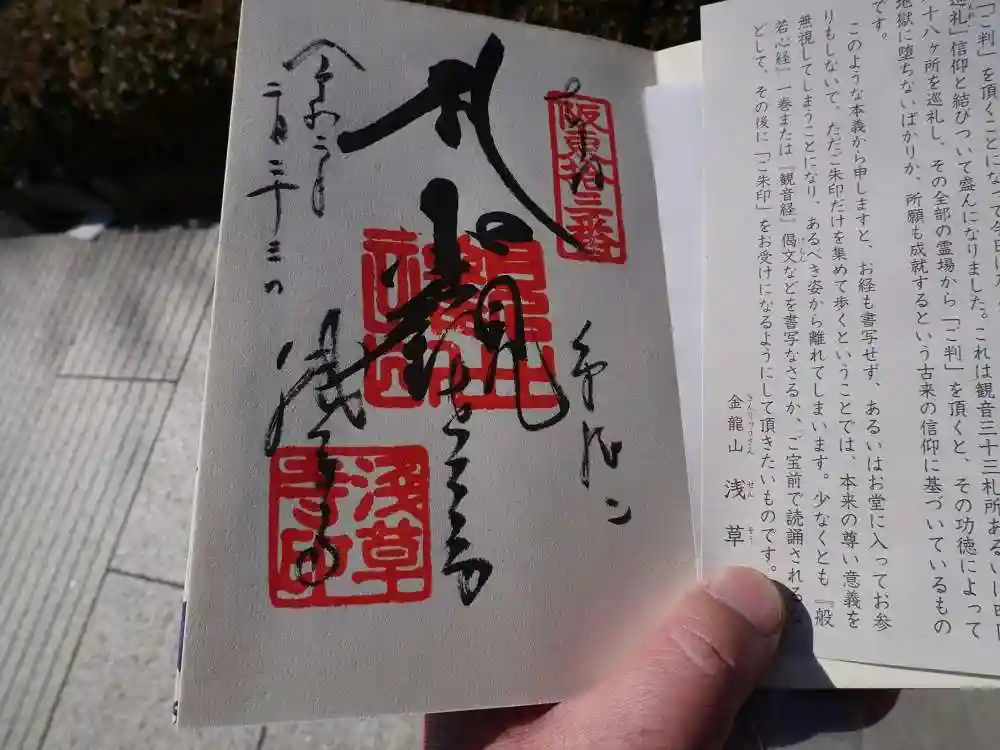 「ご判」を頂くことになって今日
巡礼」信仰と結びついて盛んになりました。これは観音三十三札所あるいは
十八ヶ所を巡礼し、その全部の霊場から「ご判」を頂くと、その功徳によって
地獄に堕ちないばかりか、所願も成就するという古来の信仰に基づいているもの
です。
このような本義から申しますと、お経も書写せず、あるいはお堂に入ってお参
りもしないで、ただご朱印だけを集めて歩くということでは、本来の尊い意義を
無視してしまうことになり、あるべき姿から離れてしまいます。少なくとも『般
若心経』一巻または『観音経』偈文などを書写なさるか、ご宝前で読誦される
どして、その後に「ご朱印」をお受けになるようにして頂きたいものです。
金龍山 浅草
阪東拾三番
浅草寺
令和二年
二月二十三日
浅草寺印